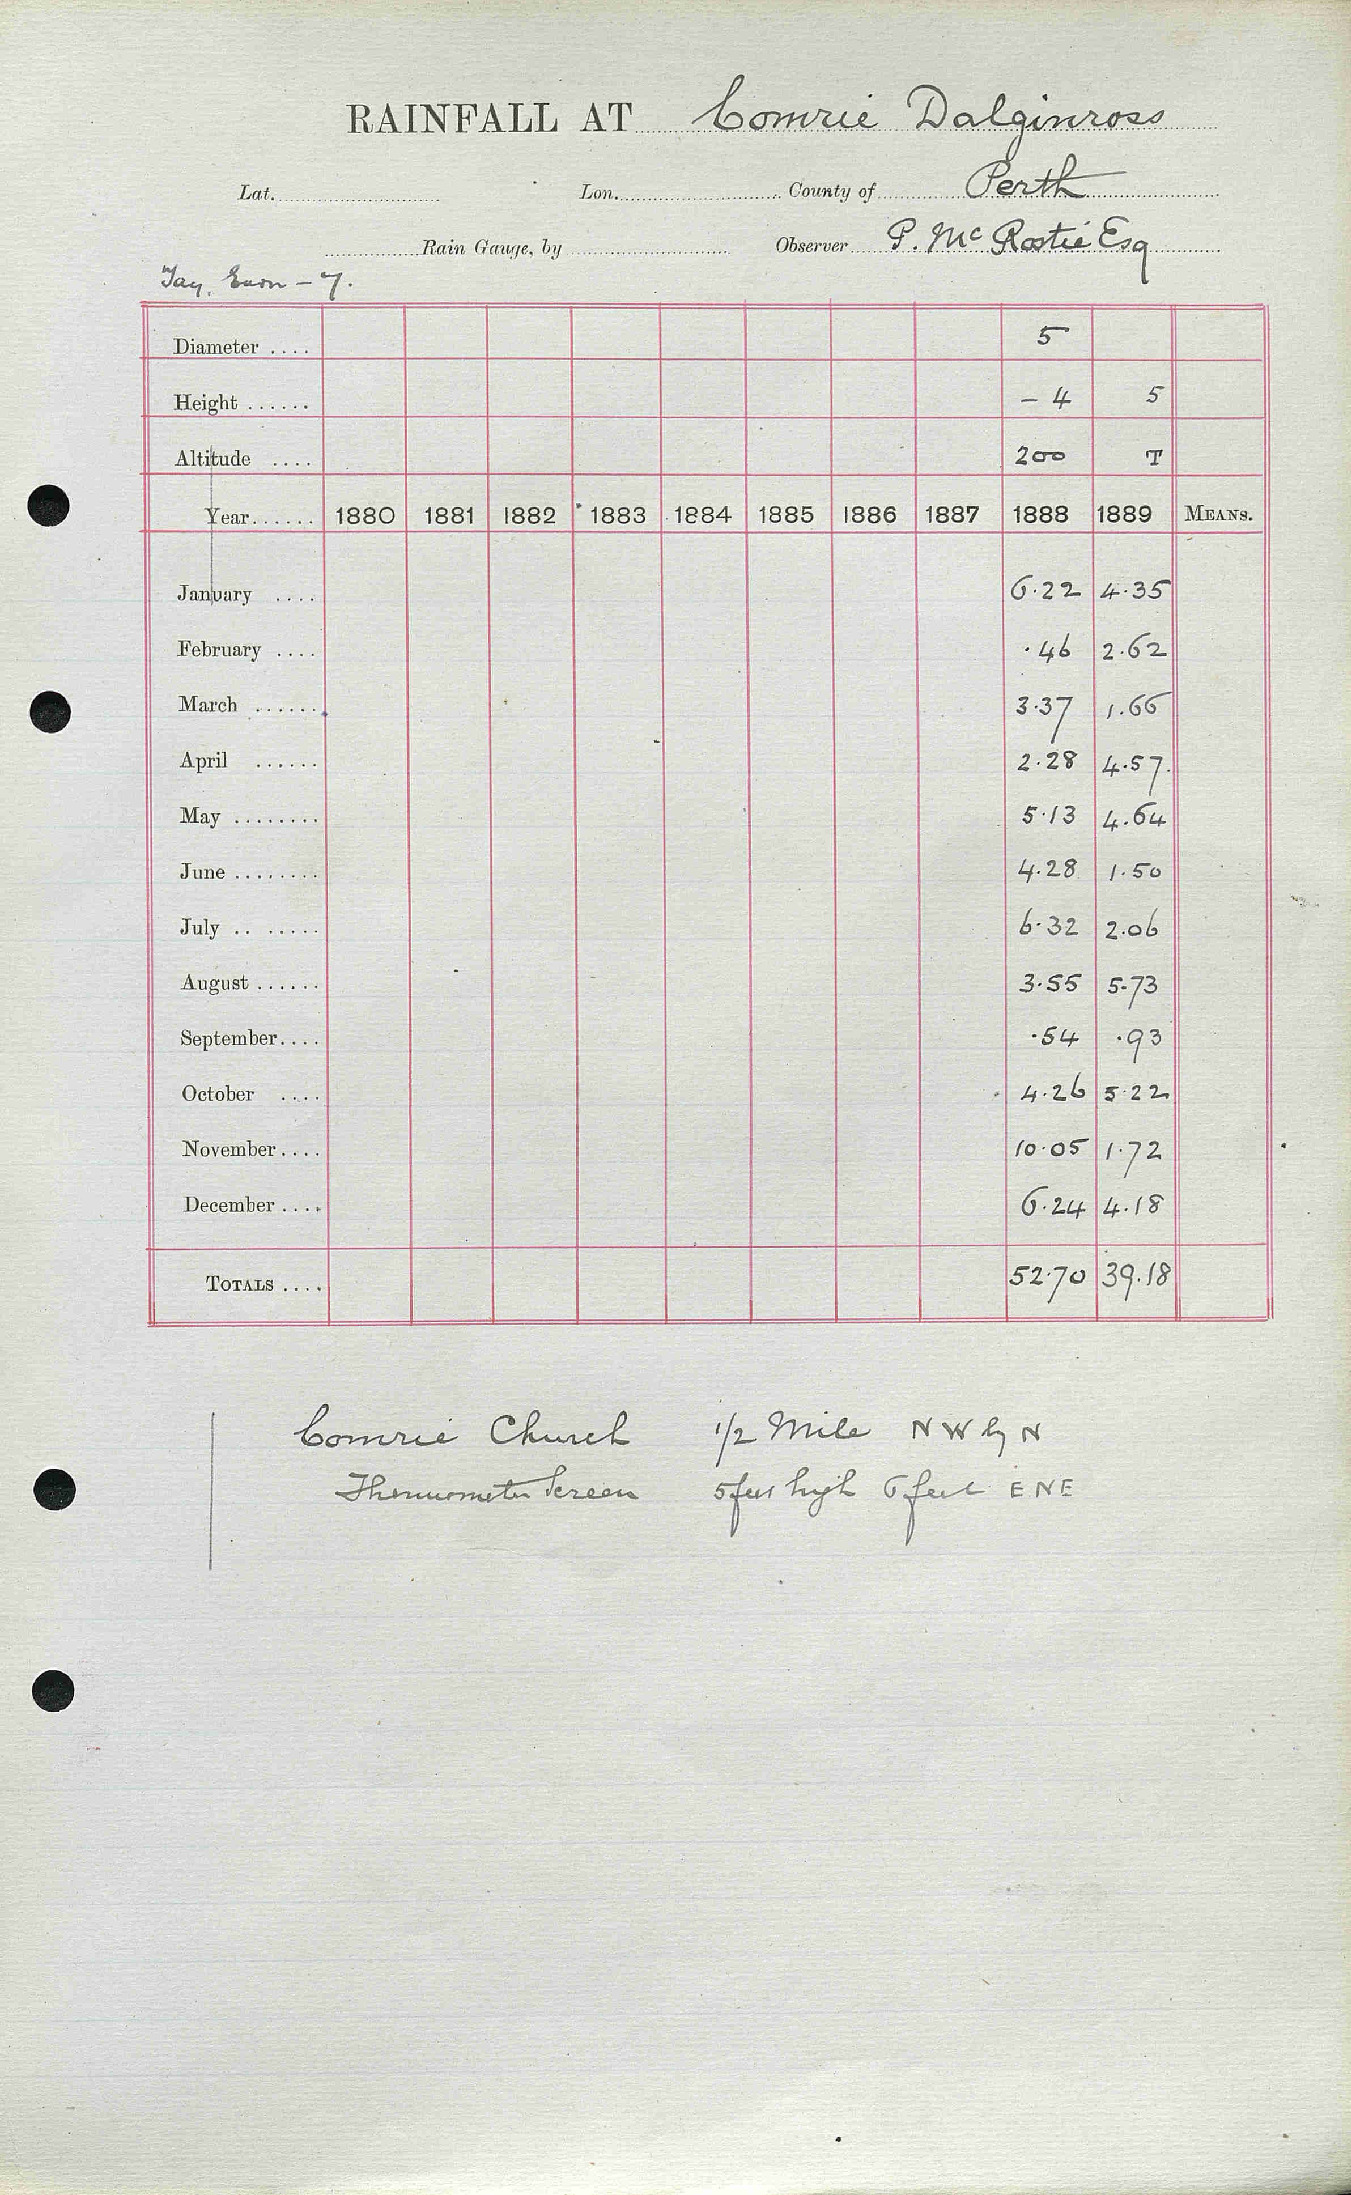 RAINFALL AT Comrie Dalginross
Lat. Lon. County of Perth
Rain Gauge, by Observer P. Mc Rostie Esq
Tay. Earn - 7.
Diameter .... 5
Height ...... - 4 5
Altitude .... 200 T
Year...... 1880 1881 1882 1883 1884 1885 1886 1887 1888 1889 MEANS.
January .... 6.22 4.35
February .... .46 2.62
March ...... 3.37 1.66
April ...... 2.28 4.57
May ........ 5.13 4.64
June ........ 4.28 1.50
July .. ..... 6.32 2.06
August ...... 3.55 5.73
September.... .54 .93
October .... 4.26 5.22
November.... 10.05 1.72
December .... 6.24 4.18
TOTALS .... 52.70 39.18
Comrie Church 1/2 Mile N W by N
Thermometer Screen 5 feet high 6 feet E N E